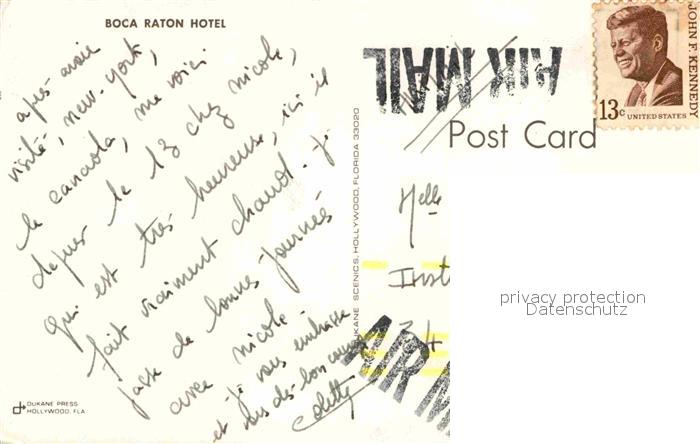 BOCA RATON HOTEL
après avoir
visité, new-york,
le canada, me voici
depuis le 13 chez nicole,
qui est très heureuse, ici il
fait vraiment chaud. je
passe de bonnes journées
avec nicole
je vous embrasse
et vous dis
Colette
DUKANE PRESS
HOLLYWOOD, FLA.
DUKANE SCENICS, HOLLYWOOD, FLORIDA 33020
AIR MAIL
Post Card
JOHN F. KENNEDY
13c UNITED STATES
Melle
Inst
34
AIR M
privacy protection
Datenschutz